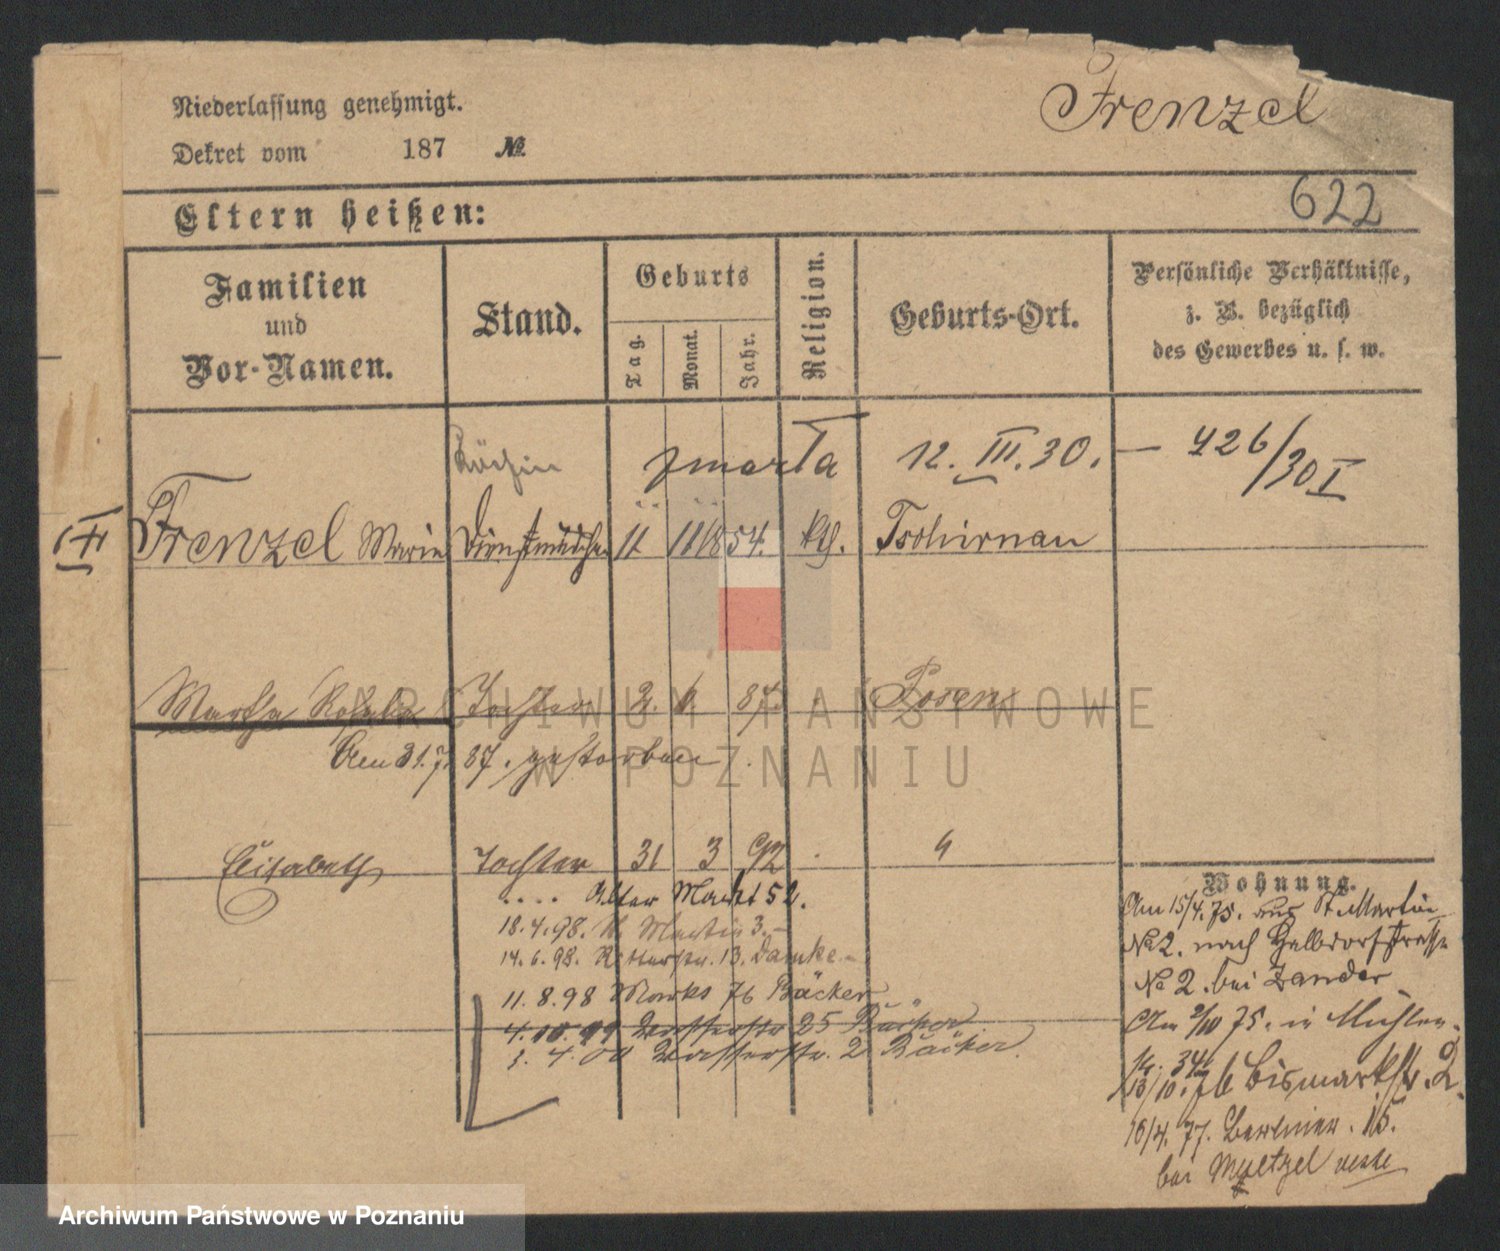 Frenzel
Niederlassung genehmigt.
Dekret vom 187 №
622
Eltern heißen:
Familien und Vor-Namen.
Stand.
Geburts
Tag.
Monat.
Jahr.
Religion.
Geburts-Ort.
Persönliche Verhältnisse,
z. B. bezüglich
des Gewerbes u. s. w.
Köchin zmarła 12. III. 30. — 426/30 I
Frenzel Marie Dienstmädchen 11 11 1854. kth. Tschirnau
Martha Tochter 2. 87. Posen
Am 31.7. 87. gestorben.
Elisabeth Tochter 31 3 92
Alter Markt 52.
18.4.98. St Martin 3.
14.6.98. Ritterstr. 13.
11.8.98 Bäcker
Wasserstr 25 Bäcker
3.4.00 Wasserstr. 2 Bäcker.
Wohnung.
Am 15/4.75. aus St. Martin
№ 2. nach Halbdorfstrasse
№ 2. bei Zander
Am 2/10 75. in Mühlen-
34
13/10. 76 Bismarckstr. 2.
16/4. 77. Berliner. 15.
bei
ARCHIWUM PAŃSTWOWE
W POZNANIU
Archiwum Państwowe w Poznaniu